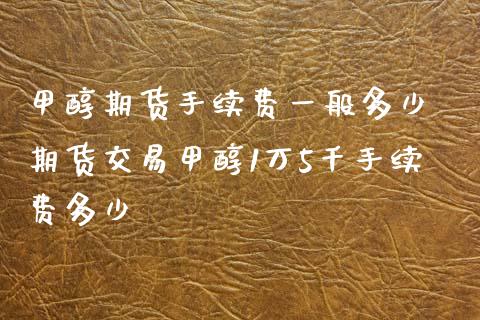 甲醇期货手续费一般多少
期货交易甲醇1万5千手续
费多少